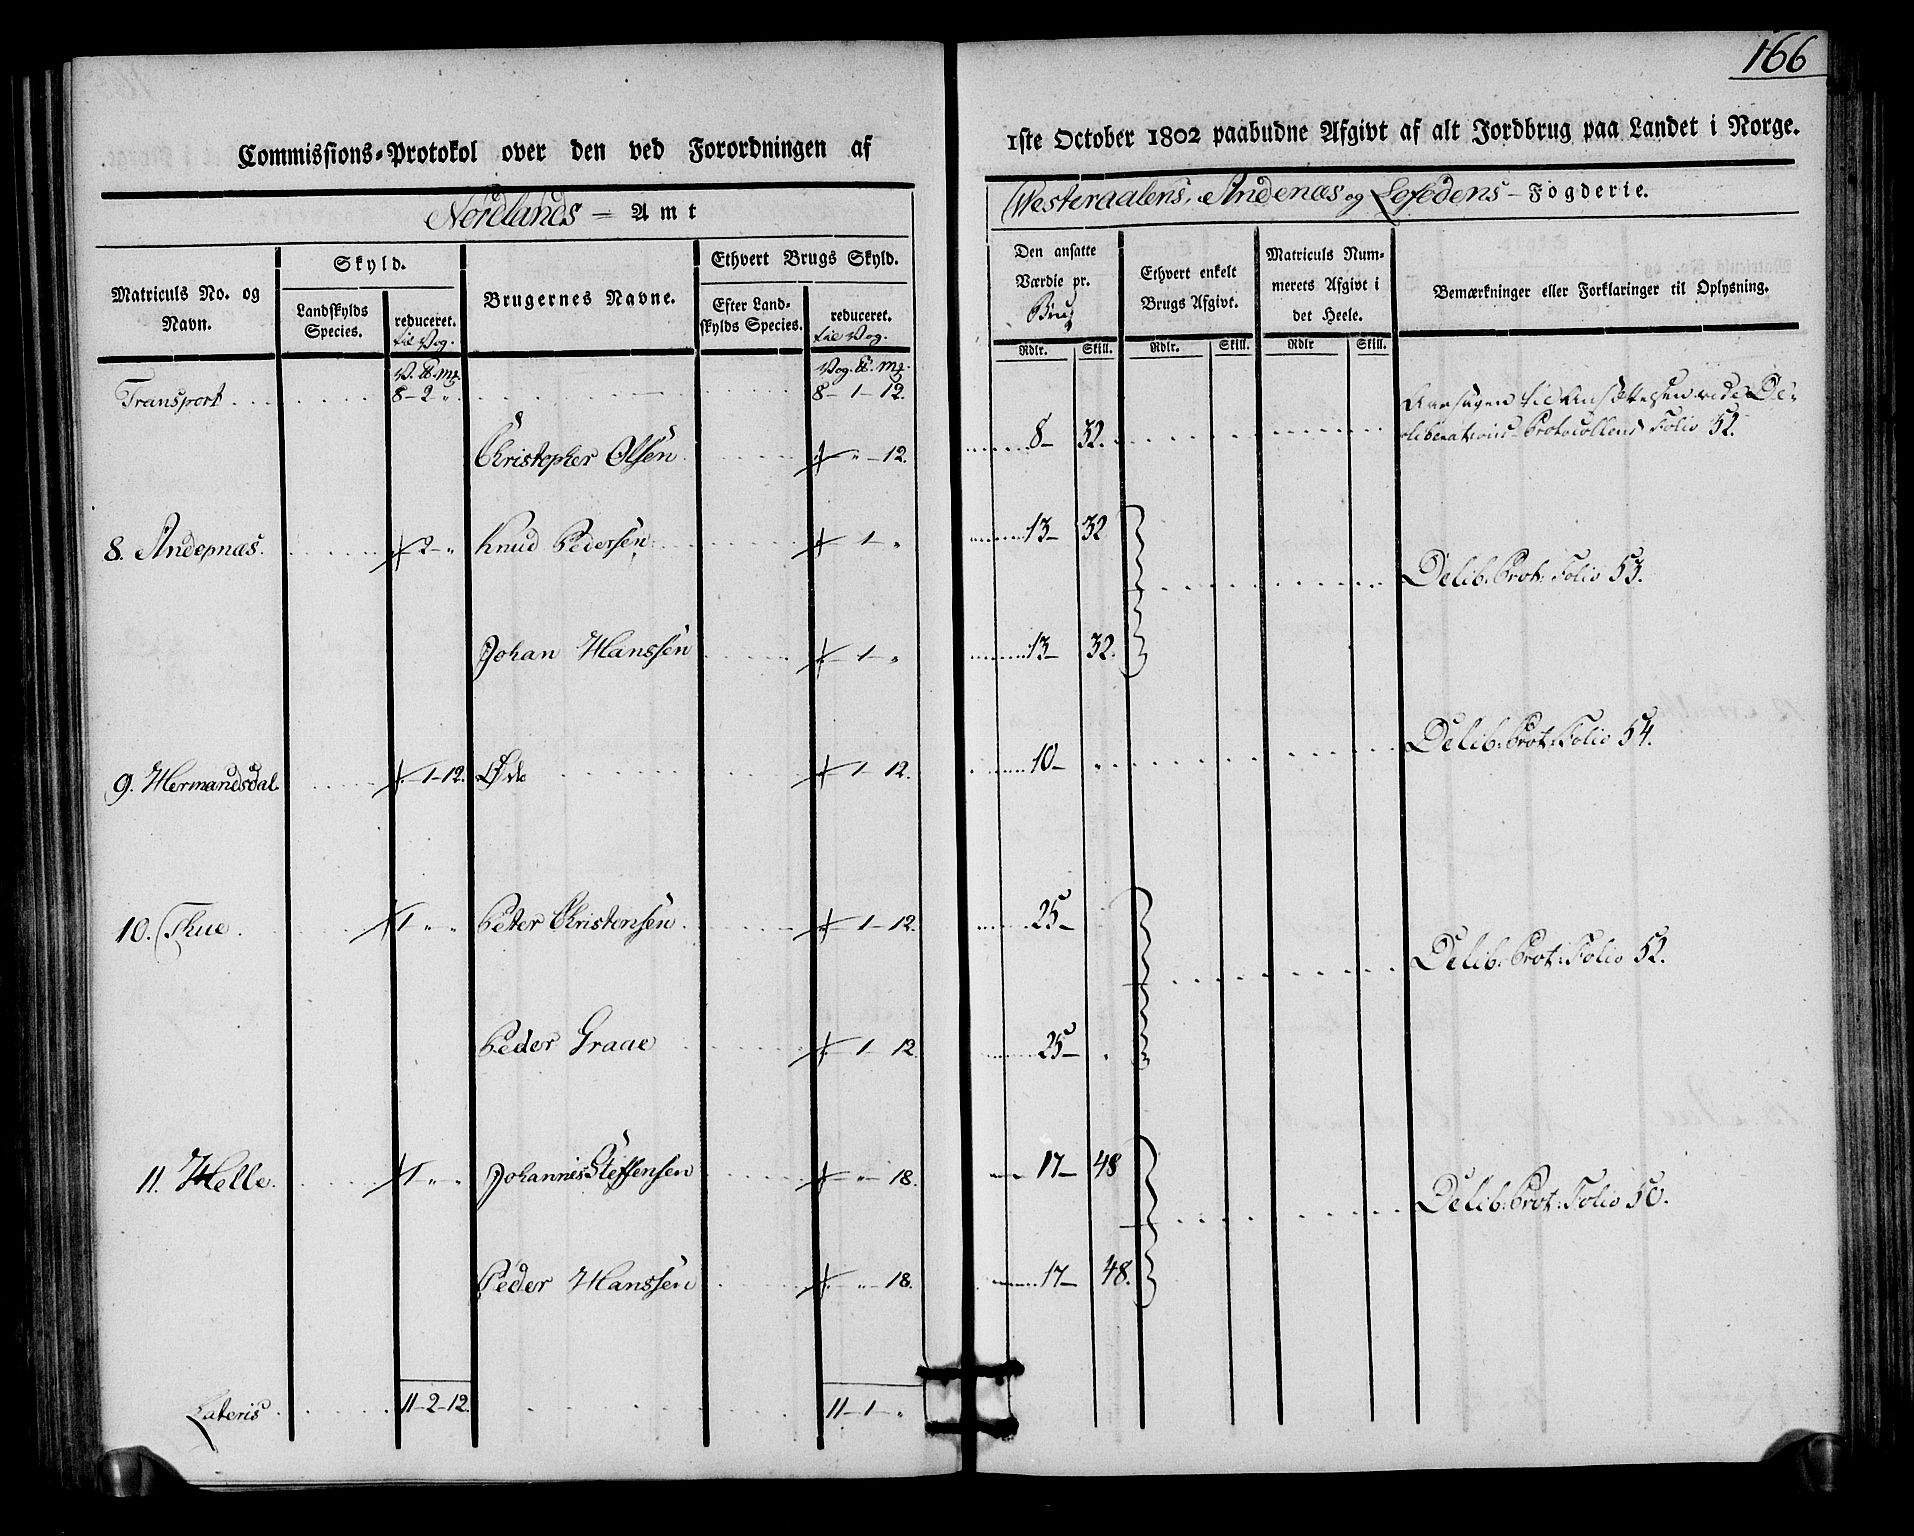 166
Commissions-Protokol over den ved Forordningen af
1ste October 1802 paabudne Afgivt af alt Jordbrug paa Landet i Norge.
Nordlands - Amt
Westeraalens, Andenæs og Lofodens - Fogderie.
Matriculs No. og Navn.
Skyld.
Landskylds Species.
reduceret. til Vog.
Brugernes Navne.
Ethvert Brugs Skyld.
Efter Landskylds Species.
reduceret. til Vog.
Den ansatte Værdie pr. Brug
Ethvert enkelt Brugs Afgivt.
Matriculs Nummerets Afgivt i det Heele.
Bemærkninger eller Forklaringer til Oplysning.
Rdlr. Skill. Rdlr. Skill. Rdlr Skill.
V. ℔. mg. Vog. ℔. mg.
Transport 8-2 „ 8-1-12.
Christopher Olsen „ -12. 8- 32. Aarsagen til Ansættelsen vide De-
liberations-Protocollens Folio 52.
8. Andepnæs. 2- „ Knud Pedersen 1- „ 13- 32
Delib: Prot: Folio 53.
Johan Hanssen 1- „ 13- 32.
9. Hermandsdal. 1-12. Øde 1-12. 10- Delib: Prot: Folio 54.
10. Thue. 1 „ „ Peter Christensen 1-12. 25-
Delib: Prot: Folio 52.
Peder Graae 1-12. 25-
11. Helle. 1 „ „ Johannis Steffensen „ -18. 17- 48
Delib: Prot: Folio 50.
Peder Hanssen „ -18. 17- 48.
Lateris 11-2-12. 11-1- „